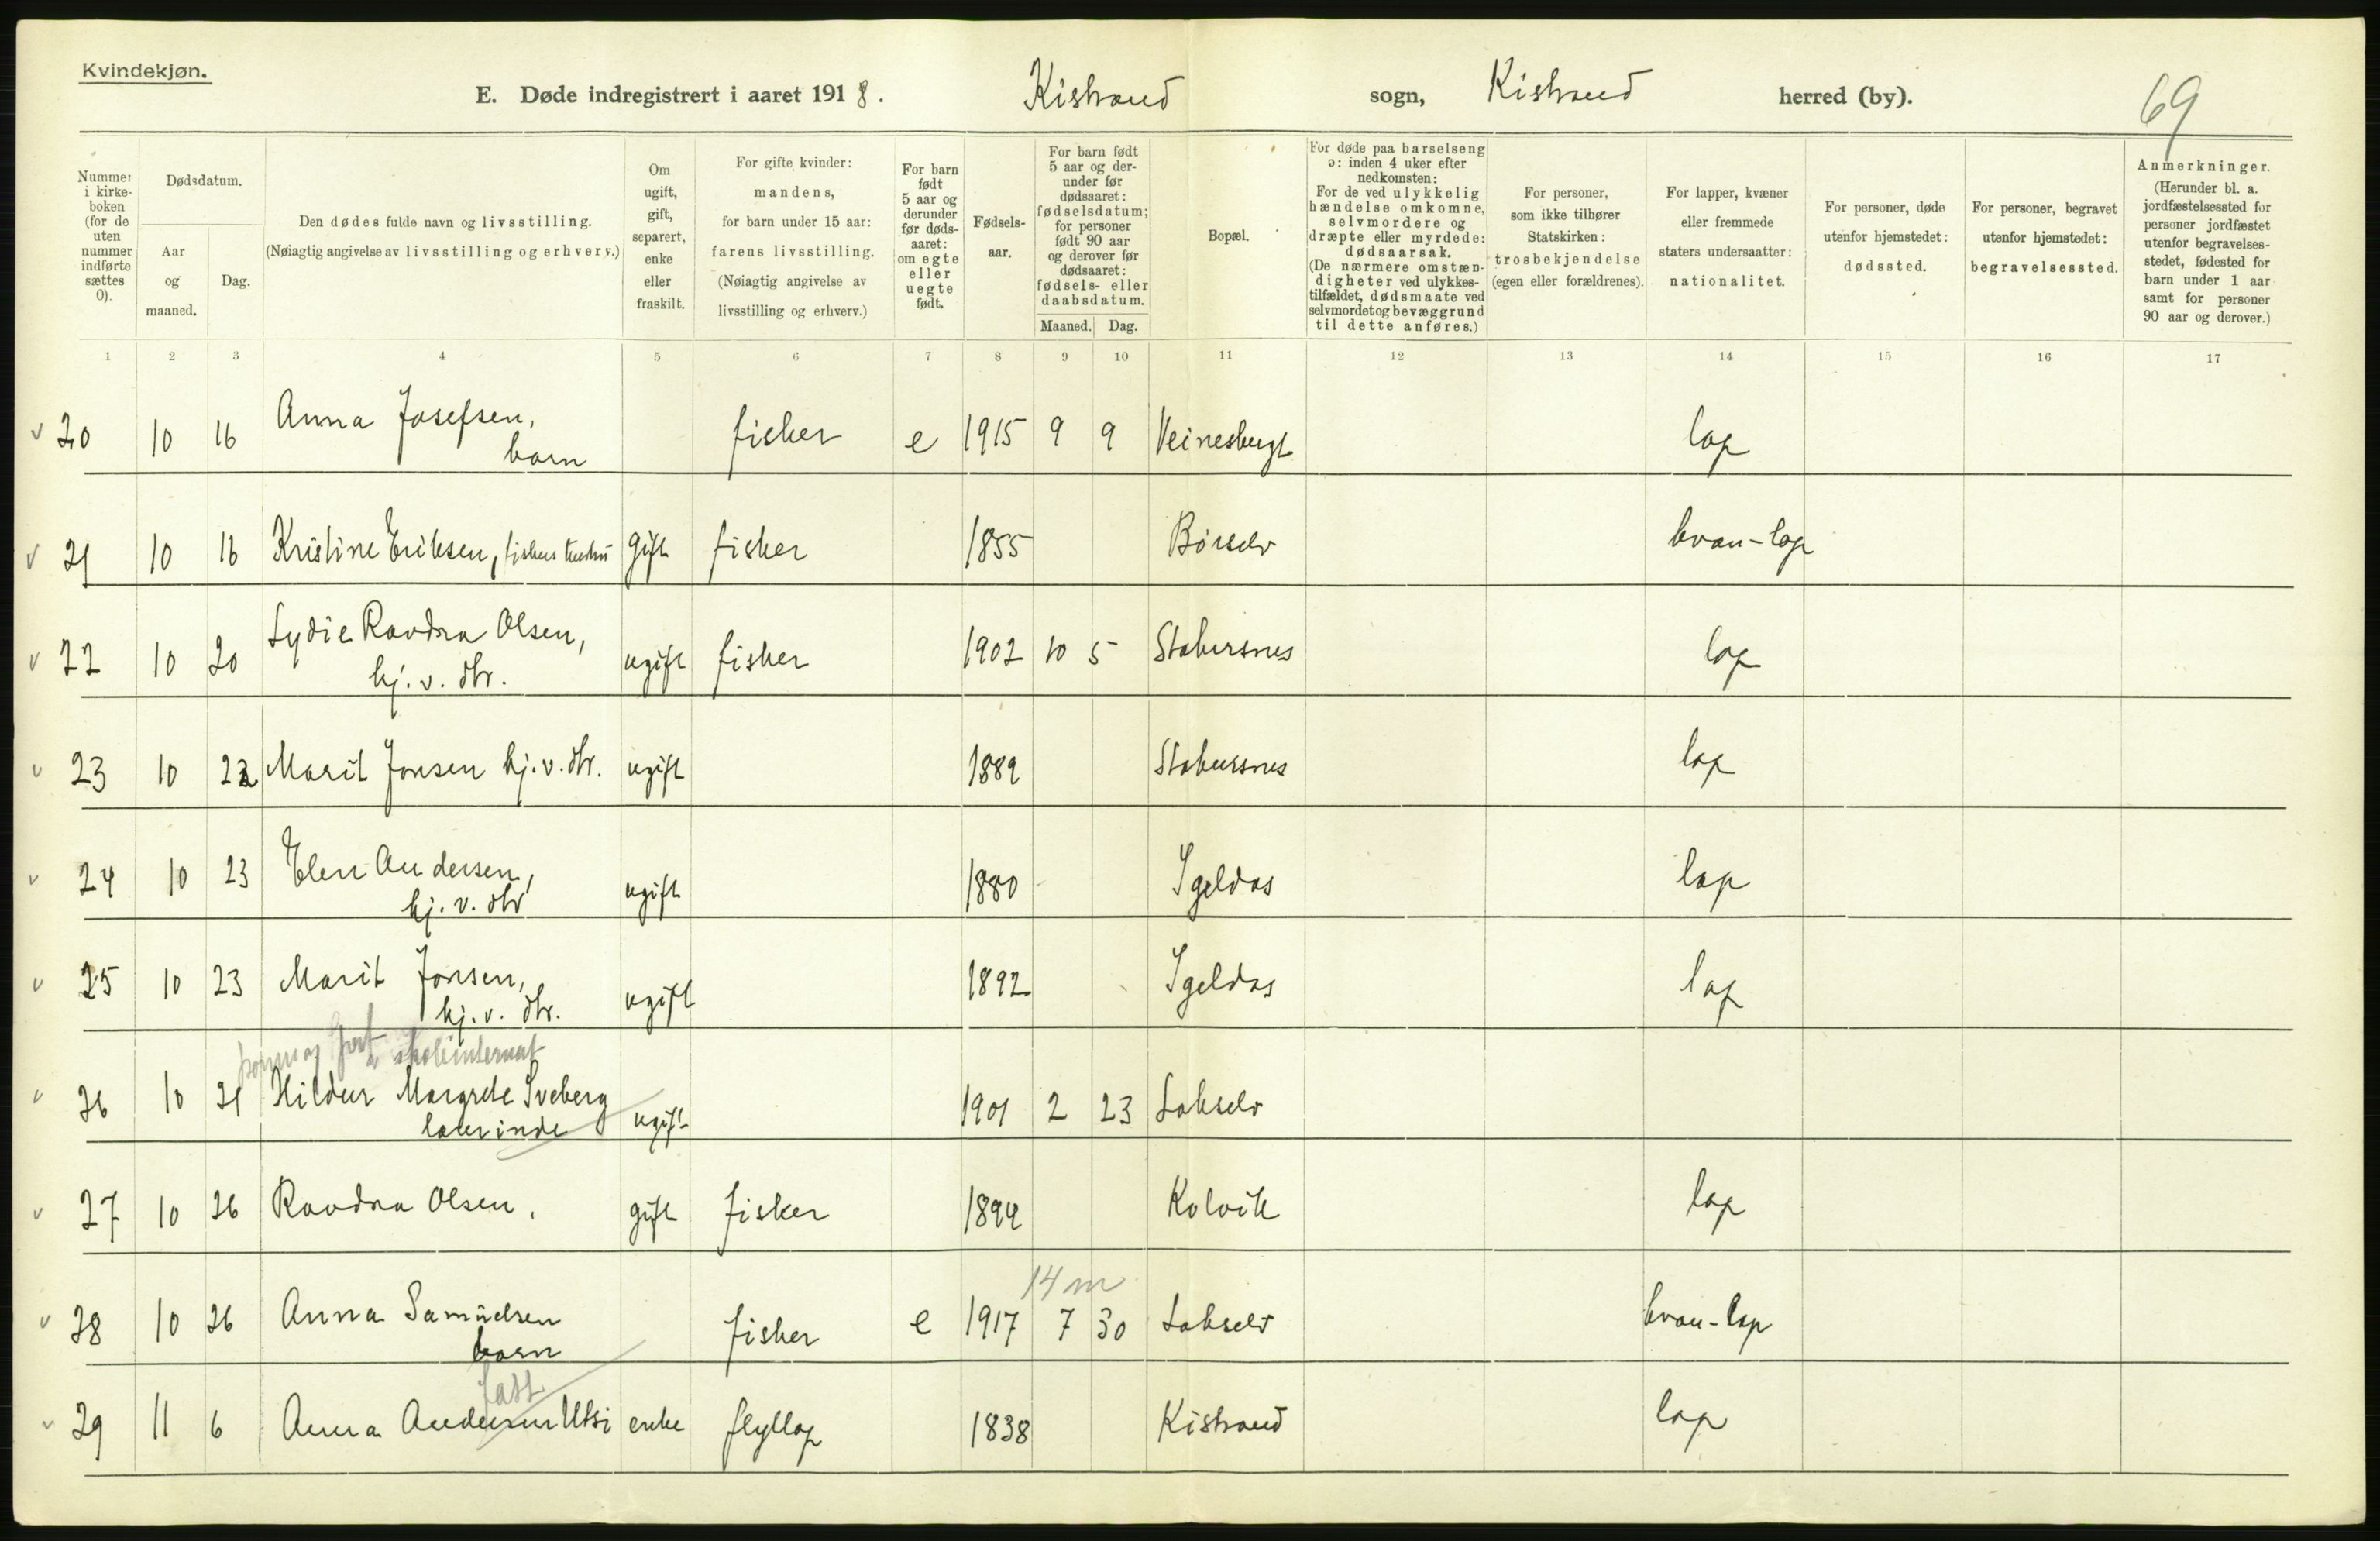 Kvindekjøn.
E. Døde indregistrert i aaret 1918. Kistrand sogn, Kistrand herred (by).
69
Nummer i kirkeboken (for de uten nummer indførte sættes 0).
Dødsdatum.
Aar og maaned.
Dag.
Den dødes fulde navn og livsstilling.
(Nøiagtig angivelse av livsstilling og erhverv.)
Om ugift, gift, separert, enke eller fraskilt.
For gifte kvinder:
mandens,
for barn under 15 aar:
farens livsstilling.
(Nøiagtig angivelse av
livsstilling og erhverv.)
For barn født 5 aar og derunder før dødsaaret: om egte eller uegte født.
Fødselsaar.
For barn født 5 aar og derunder før dødsaaret: fødselsdatum; for personer født 90 aar og derover før dødsaaret: fødsels- eller daabsdatum.
Maaned. Dag.
Bopæl.
For døde paa barselseng ɔ: inden 4 uker efter nedkomsten:
For de ved ulykkelig hændelse omkomne, selvmordere og dræpte eller myrdede: dødsaarsak.
(De nærmere omstændigheter ved ulykkestilfældet, dødsmaate ved selvmordet og bevæggrund til dette anføres.)
For personer, som ikke tilhører Statskirken: trosbekjendelse (egen eller forældrenes).
For lapper, kvæner eller fremmede staters undersaatter: nationalitet.
For personer, døde utenfor hjemstedet: dødssted.
For personer, begravet utenfor hjemstedet: begravelsessted.
Anmerkninger.
(Herunder bl. a. jordfæstelsessted for personer jordfæstet utenfor begravelsesstedet, fødested for barn under 1 aar samt for personer 90 aar og derover.)
1 2 3 4 5 6 7 8 9 10 11 12 13 14 15 16 17
v 20 10 16 Anna Josefsen, barn fisker e 1915 9 9 Veinesbugt lap
v 21 10 16 Kristine Eriksen, fiskers gift fisker 1855 Børselv kvæn-lap
v 22 10 20 Lydie Ravdna Olsen, hj. v. dtr. ugift fisker 1902 10 5 Stabursnes lap
v 23 10 22 Marit Jonsen hj. v. dtr. ugift 1889 Stabursnes lap
v 24 10 23 Elen Andersen, hj. v. dtr ugift 1880 Igeldas lap
v 25 10 23 Marit Jonsen, hj. v. dtr. ugift 1892 Igeldas lap
skoleinternat
v 26 10 21 Hildur Margrete Sveberg lærerinde ugift 1901 2 23 Lakselv
v 27 10 26 Ravdna Olsen, gift fisker 1894 Kolvik lap
14 m
v 28 10 26 Anna Samuelsen barn fisker e 1917 7 30 Lakselv kvæn-lap
fatt.
v 29 11 6 Anna Andersen Utsi enke flytlap 1838 Kistrand lap